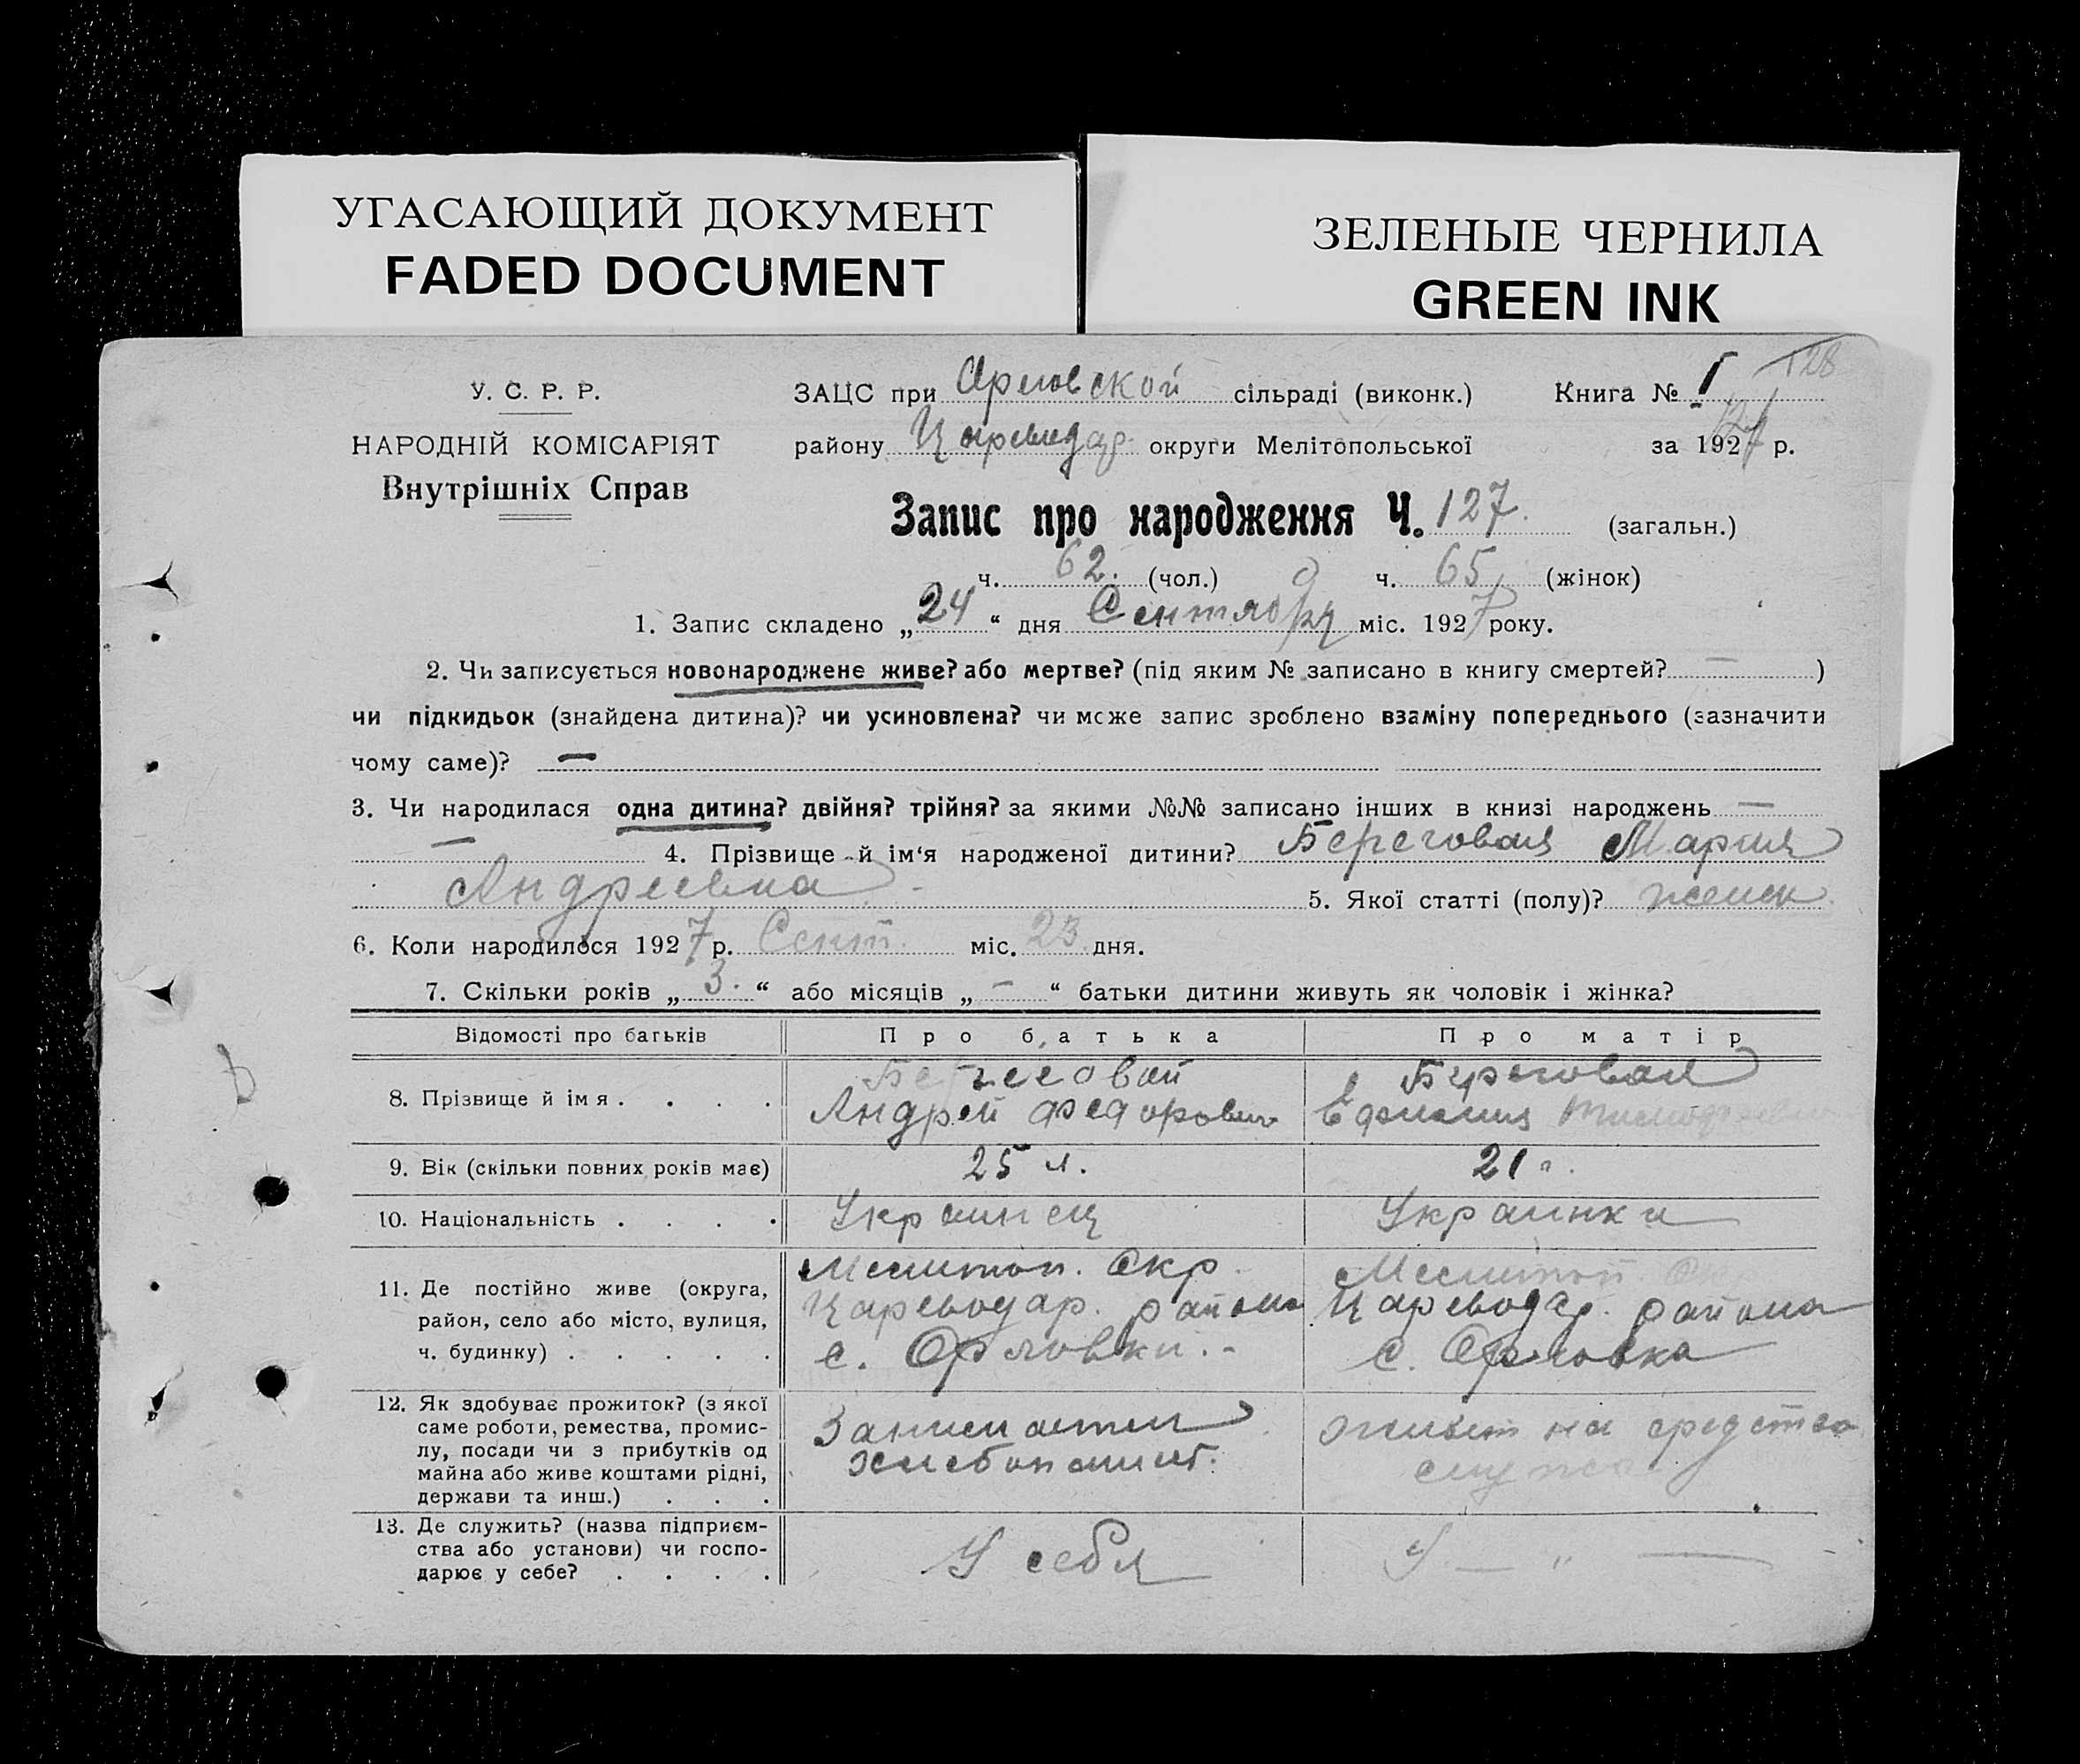 УГАСАЮЩИЙ ДОКУМЕНТ
FADED DOCUMENT
ЗЕЛЕНЫЕ ЧЕРНИЛА
GREEN INK
У. С. Р. Р.
НАРОДНІЙ КОМІСАРІЯТ
Внутрішніх Справ
ЗАЦС при Орловской сільраді (виконк.) Книга № 1 128
району Царевидар. округи Мелітопольської за 1927 р.
Запис про народження Ч. 127. (загальн.)
ч. 62. (чол.) ч. 65 (жінок)
1. Запис складено „24“ дня Сентября міс. 1927 року.
2. Чи записується новонароджене живе? або мертве? (під яким № записано в книгу смертей? — )
чи підкидьок (знайдена дитина)? чи усиновлена? чи може запис зроблено взаміну попереднього (зазначити
чому саме)? —
3. Чи народилася одна дитина? двійня? трійня? за якими №№ записано інших в книзі народжень —
— 4. Прізвище й ім‘я народженої дитини? Береговая Мария
Андреевна 5. Якої статті (полу)? женск.
6. Коли народилося 1927 р. Сент. міс. 23 дня.
7. Скільки років „3.“ або місяців „—“ батьки дитини живуть як чоловік і жінка?
Відомості про батьків Про батька Про матір
8. Прізвище й імя . . . . Береговой Андрей Федорович Береговая Ефимия
9. Вік (скільки повних років має) 25 л. 21 г.
10. Національність . . . . Украинец Украинка
11. Де постійно живе (округа, Мелитоп. Окр. Мелитоп. Окр
район, село або місто, вулиця, Цареводар. района Цареводар. района
ч. будинку) . . . . . с. Орловки. с. Орловка
12. Як здобуває прожиток? (з якої
саме роботи, ремества, промис-
лу, посади чи з прибутків од
майна або живе коштами рідні,
держави та инш.) . . .
Занимается
хлебопаш.
живет на средства
мужа
13. Де служить? (назва підприєм-
ства або установи) чи госпо-
дарює у себе? . . . .
У себя
У — „ —